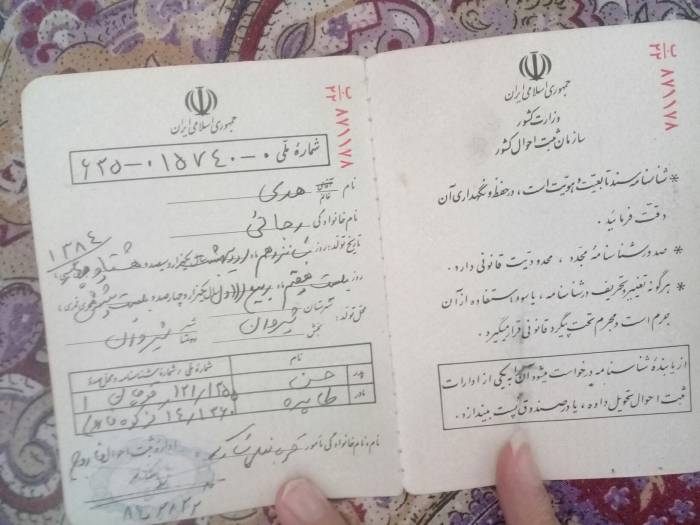 جمهوری اسلامی ایران
وزارت کشور
سازمان ثبت احوال کشور
۸۷۱۱۷۸
* شناسنامه سند تابعیت و هویت است ، در حفظ و نگهداری آن
دقت فرمائید .
* صدور شناسنامه مجدد ، محدودیت قانونی دارد .
* هرگونه تغییر و تحریف در شناسنامه ، یا سوء استفاده از آن
جرم است و مجرم تحت پیگرد قانونی قرار میگیرد .
از یابنده شناسنامه درخواست میشود آن را به یکی از ادارات
ثبت احوال تحویل داده ، یا در صندوق پست بیندازد .
جمهوری اسلامی ایران
۸۷۱۱۷۸
شماره ملی
نام خانم هدی
نام خانوادگی
۱۳۸۴
تاریخ تولد : روز شانزدهم ماه اردیبهشت یکهزار و سیصد و هشتاد و
روز بیست هفتم ماه ربیع الاول یکهزار و چهارصد و بیست و شش قمری ،
محل تولد : شهرستان شیروان
بخش شهر شیروان
نام
شماره ملی / شماره شناسنامه و محل صدور
پدر حسن
مادر طاهره
نام و نام خانوادگی مامور
اداره ثبت احوال